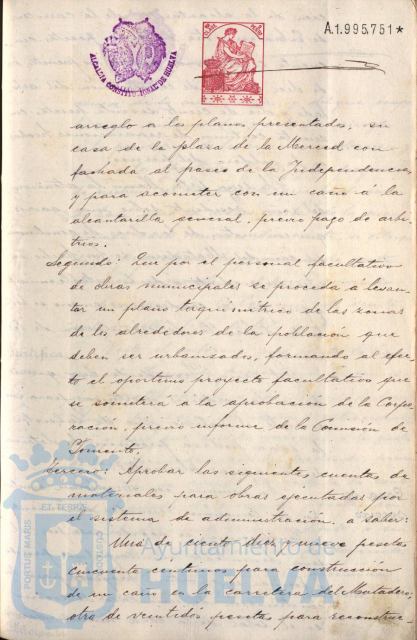 A.1.995.751*
ALCALDIA CONSTITUCIONAL DE HUELVA
arreglo a los planos presentados, su
casa de la plaza de la Merced con
fachada al paseo de la Independencia
y para acometer con un caño á la
alcantarilla general, previo pago de arbi-
trios.
Segundo: Que por el personal facultativo
de obras municipales se proceda á levan-
tar un plano taquimétrico de las zonas
de los alrededores de la población que
deben ser urbanizados, formando al efec-
to el oportuno proyecto facultativo que
se someterá á la aprobación de la Corpo-
ración, previo informe de la Comisión de
Fomento.
Tercero: Aprobar las siguientes cuentas de
materiales para obras ejecutadas por
el sistema de administración, a saber:
Una de ciento diez y nueve pesetas
cincuenta céntimos para construcción
de un caño en la carretera del Matadero;
otra de veintidós pesetas para reconstruc
Ayuntamiento de
HUELVA
PORTUS MARIS
ET TERRAE
CUSTODIA